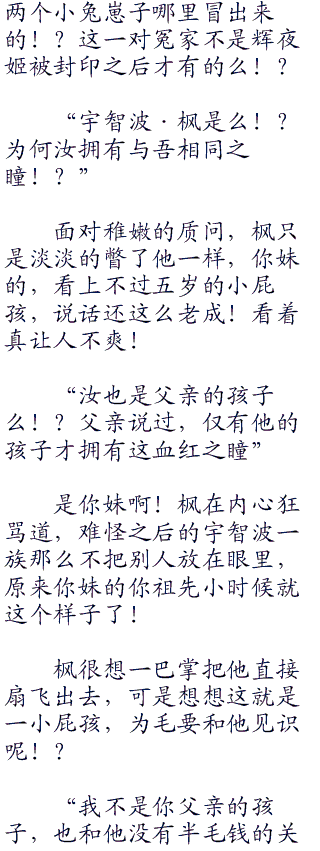 两个小兔崽子哪里冒出来
的！？这一对冤家不是辉夜
姬被封印之后才有的么！？
“宇智波·枫是么！？
为何汝拥有与吾相同之
瞳！？”
面对稚嫩的质问，枫只
是淡淡的瞥了他一样，你妹
的，看上不过五岁的小屁
孩，说话还这么老成！看着
真让人不爽！
“汝也是父亲的孩子
么！？父亲说过，仅有他的
孩子才拥有这血红之瞳”
是你妹啊！枫在内心狂
骂道，难怪之后的宇智波一
族那么不把别人放在眼里，
原来你妹的你祖先小时候就
这个样子了！
枫很想一巴掌把他直接
扇飞出去，可是想想这就是
一小屁孩，为毛要和他见识
呢！？
“我不是你父亲的孩
子，也和他没有半毛钱的关